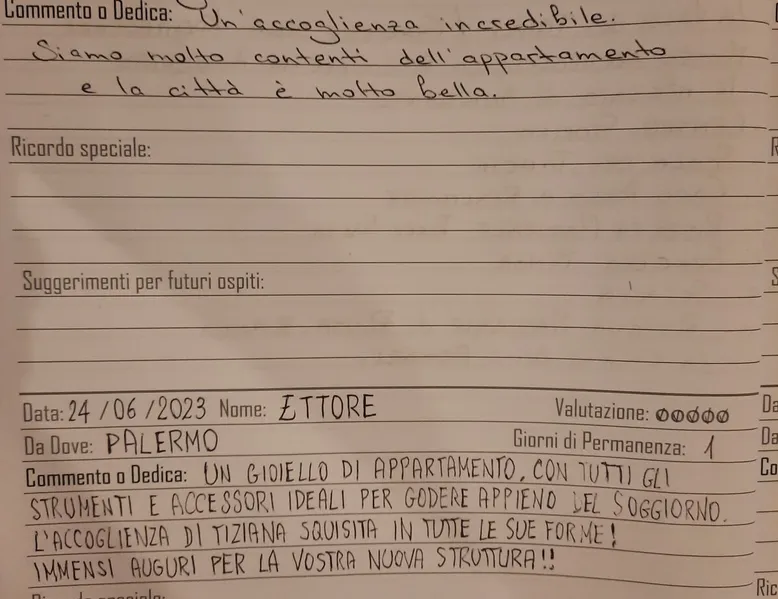 Commento o Dedica: Un'accoglienza incredibile.
Siamo molto contenti dell'appartamento
e la città è molto bella.
Ricordo speciale:
Suggerimenti per futuri ospiti:
Data: 24/06/2023 Nome: ETTORE Valutazione:
Da Dove: PALERMO Giorni di Permanenza: 1
Commento o Dedica: UN GIOIELLO DI APPARTAMENTO, CON TUTTI GLI
STRUMENTI E ACCESSORI IDEALI PER GODERE APPIENO DEL SOGGIORNO.
L'ACCOGLIENZA DI TIZIANA SQUISITA IN TUTTE LE SUE FORME!
IMMENSI AUGURI PER LA VOSTRA NUOVA STRUTTURA!!